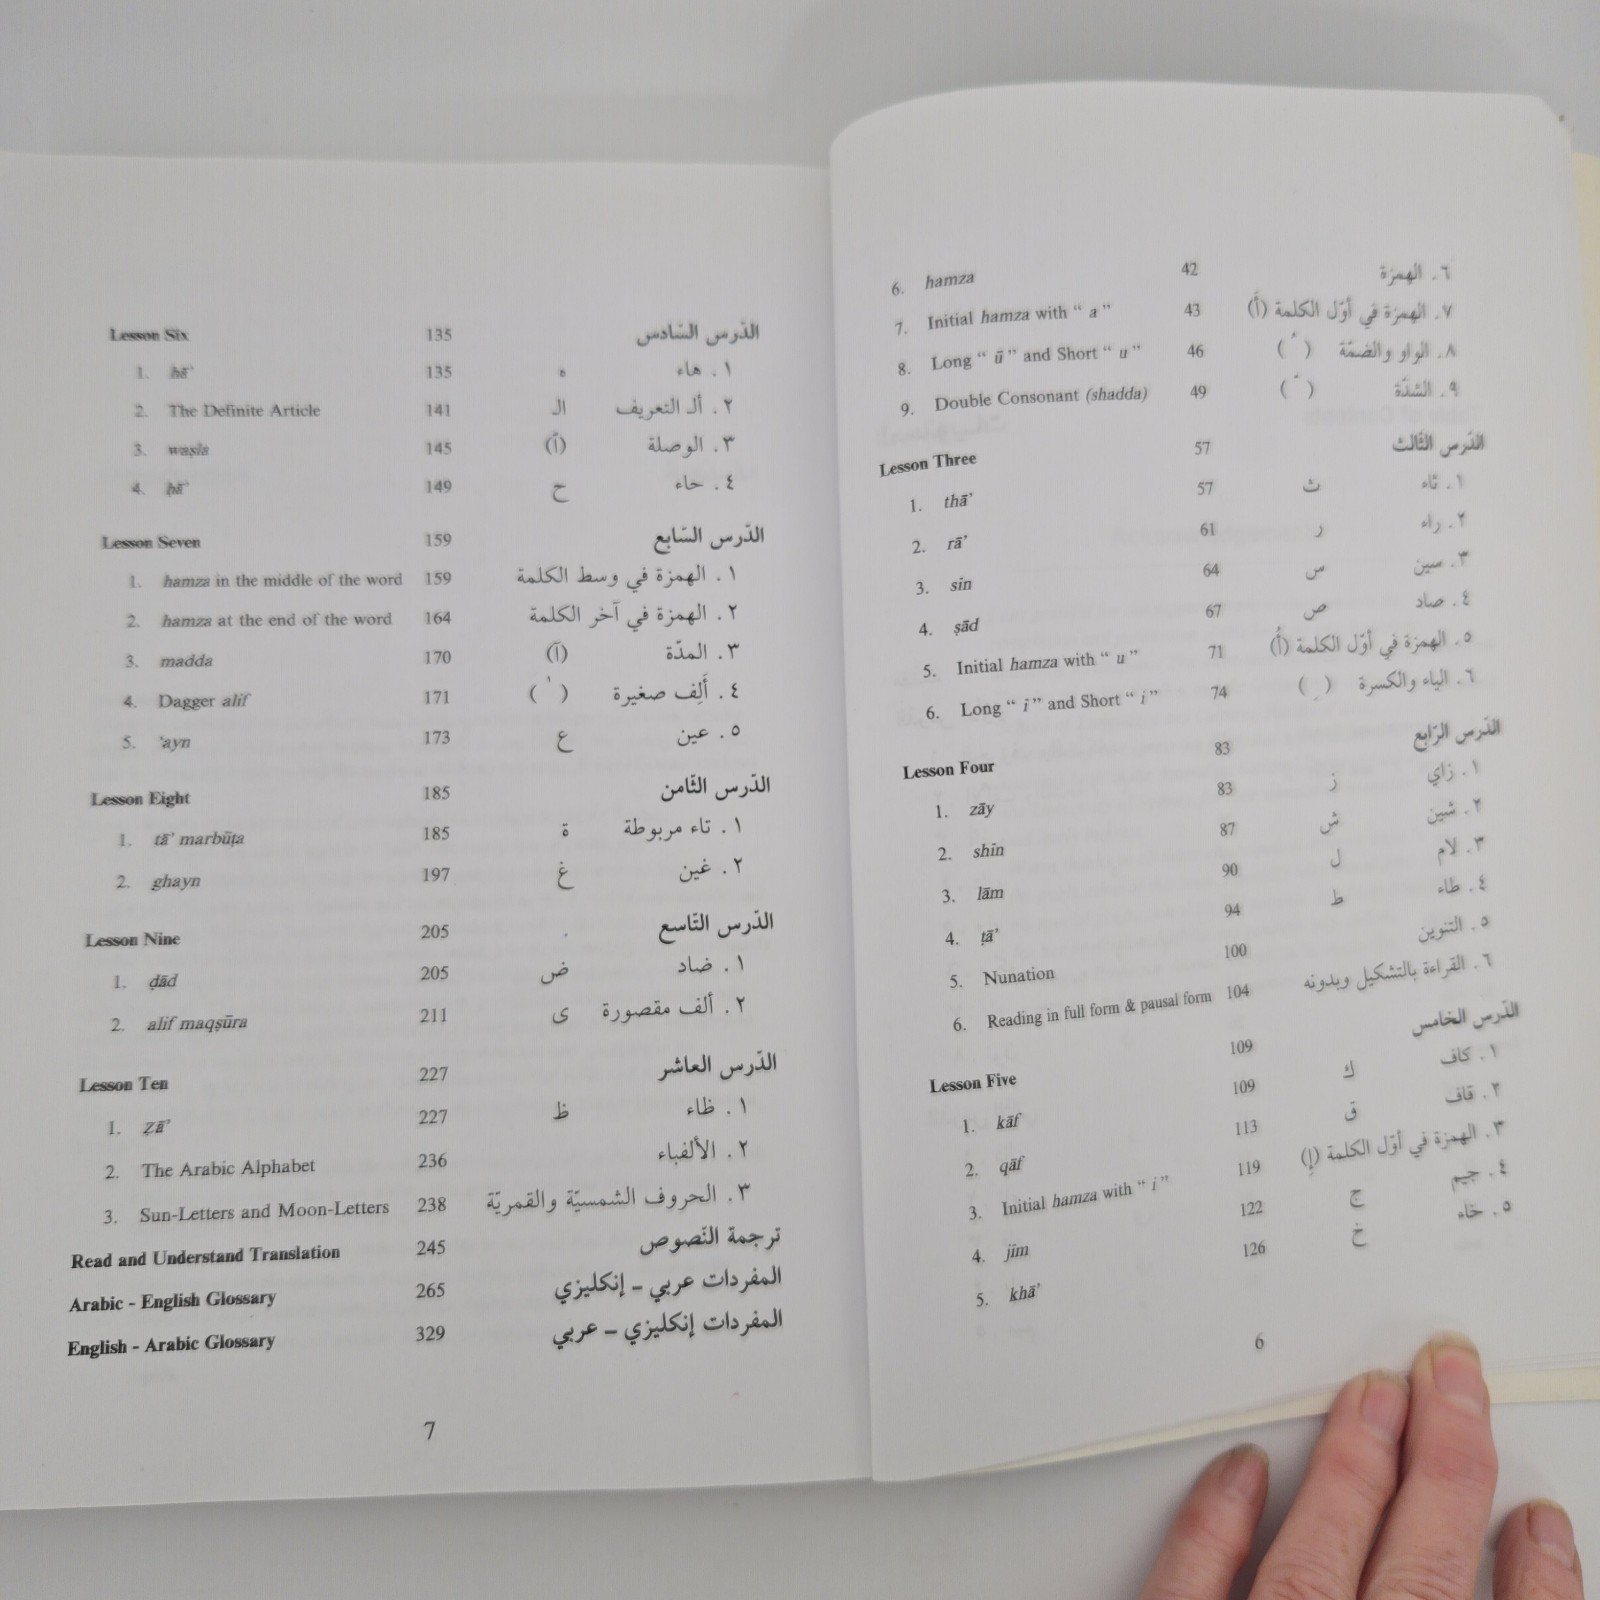 6. hamza 42 ٦. الهمزة
7. Initial hamza with “ a ” 43 ٧. الهمزة في أوّل الكلمة (أَ)
8. Long “ ū ” and Short “ u ” 46 ٨. الواو والضمّة ( ُ )
9. Double Consonant (shadda) 49 ٩. الشدّة ( ّ )
Lesson Three 57 الدّرس الثّالث
1. thā’ 57 ث ١. ثاء
2. rā’ 61 ر ٢. راء
3. sīn 64 س ٣. سين
4. ṣād 67 ص ٤. صاد
5. Initial hamza with “ u ” 71 ٥. الهمزة في أوّل الكلمة (أُ)
6. Long “ ī ” and Short “ i ” 74 ٦. الياء والكسرة ( ِ )
Lesson Four 83 الدّرس الرّابع
1. zāy 83 ز ١. زاي
2. shīn 87 ش ٢. شين
3. lām 90 ل ٣. لام
4. ṭā’ 94 ط ٤. طاء
5. Nunation 100 ٥. التنوين
6. Reading in full form & pausal form 104 ٦. القراءة بالتشكيل وبدونه
Lesson Five 109 الدّرس الخامس
1. kāf 109 ك ١. كاف
2. qāf 113 ق ٢. قاف
3. Initial hamza with “ i ” 119 ٣. الهمزة في أوّل الكلمة (إِ)
4. jīm 122 ج ٤. جيم
5. khā’ 126 خ ٥. خاء
6
Lesson Six 135 الدّرس السّادس
1. hā’ 135 ه ١. هاء
2. The Definite Article 141 الـ ٢. ألـ التعريف
3. waṣla 145 (ٱ) ٣. الوصلة
4. ḥā’ 149 ح ٤. حاء
Lesson Seven 159 الدّرس السّابع
1. hamza in the middle of the word 159 ١. الهمزة في وسط الكلمة
2. hamza at the end of the word 164 ٢. الهمزة في آخر الكلمة
3. madda 170 (آ) ٣. المدّة
4. Dagger alif 171 ( ٰ ) ٤. أَلِف صغيرة
5. ‘ayn 173 ع ٥. عين
Lesson Eight 185 الدّرس الثّامن
1. tā’ marbūṭa 185 ة ١. تاء مربوطة
2. ghayn 197 غ ٢. غين
Lesson Nine 205 الدّرس التّاسع
1. ḍād 205 ض ١. ضاد
2. alif maqṣūra 211 ى ٢. ألف مقصورة
Lesson Ten 227 الدّرس العاشر
1. Ẓā’ 227 ظ ١. ظاء
2. The Arabic Alphabet 236 ٢. الألفباء
3. Sun-Letters and Moon-Letters 238 ٣. الحروف الشمسيّة والقمريّة
Read and Understand Translation 245 ترجمة النّصوص
Arabic - English Glossary 265 المفردات عربي – إنكليزي
English - Arabic Glossary 329 المفردات إنكليزي – عربي
7